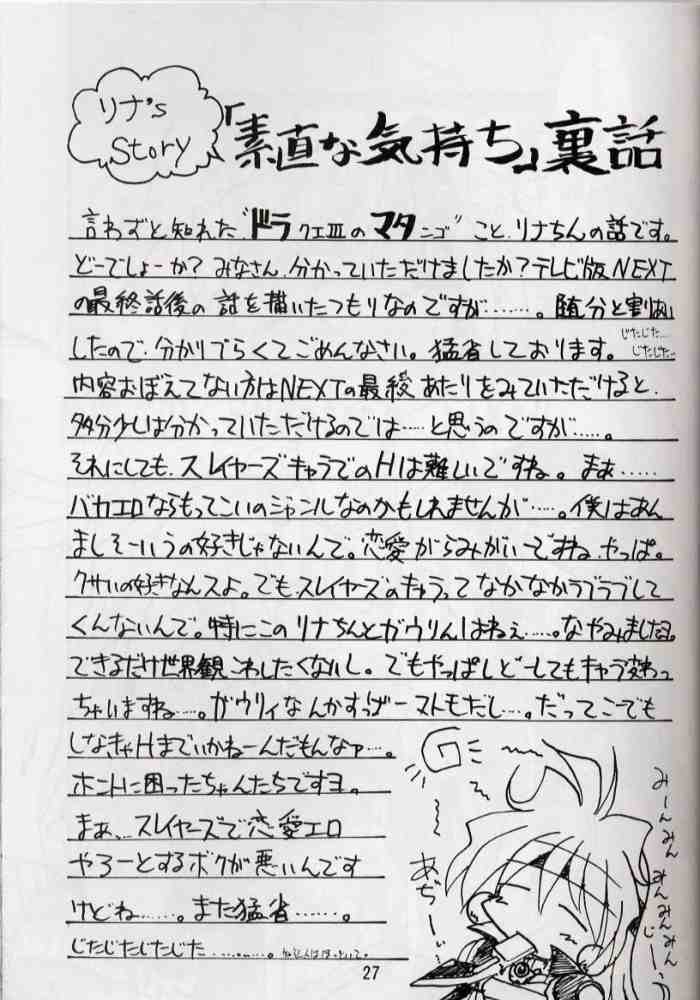 リナ's
Story
「素直な気持ち」裏話
言わずと知れた“ドラクエⅢのマタンゴ”こと、リナちんの話です。
どーでしょーか?みなさん、分かっていただけましたか?テレビ版NEXT
の最終話後の話を描いたつもりなのですが……。随分と割あい
したので、分かりづらくてごめんなさい。猛省しております。
じたじた…
じたじた…
内容おぼえてない方はNEXTの最終あたりをみていただけると、
多分少しは分かっていただけるのでは…と思うのですが……。
それにしても、スレイヤーズキャラでのHは難しいですね。まぁ……
バカエロならもってこいのジャンルなのかもしれませんが……。僕はあん
ましそーいうの好きじゃないんで。恋愛がらみがいーですね、やっぱ。
クサいの好きなんスよ。でもスレイヤーズのキャラってなかなかラブラブして
くんないんで。特にこのリナちんとガウりんはねぇ……。なやみましたョ。
できるだけ世界観こわしたくないし。でもやっぱしどーしてもキャラ変わっ
ちゃいますね……。ガウリィなんかすげーマトモだし…。だってこーでも
しなきゃHまでいかねーんだもんなァ…。
ホントに困ったちゃんたちですヨ。
まぁ、スレイヤーズで恋愛エロ
やろーとするボクが悪いんです
けどね……。また猛省……。
じたじたじたじた………
みーんみん
みんみんみん
じーー
あぢーーー
27